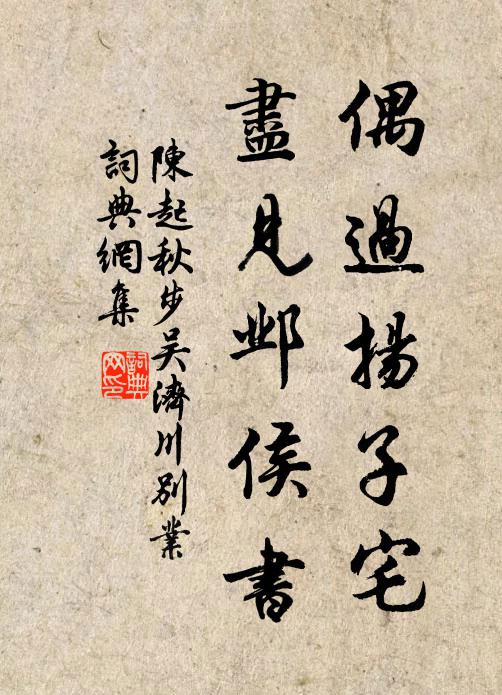 偶過揚子宅
盡見邺侯書
陳起秋步吴濟川別業
詞典網集
詞典網印